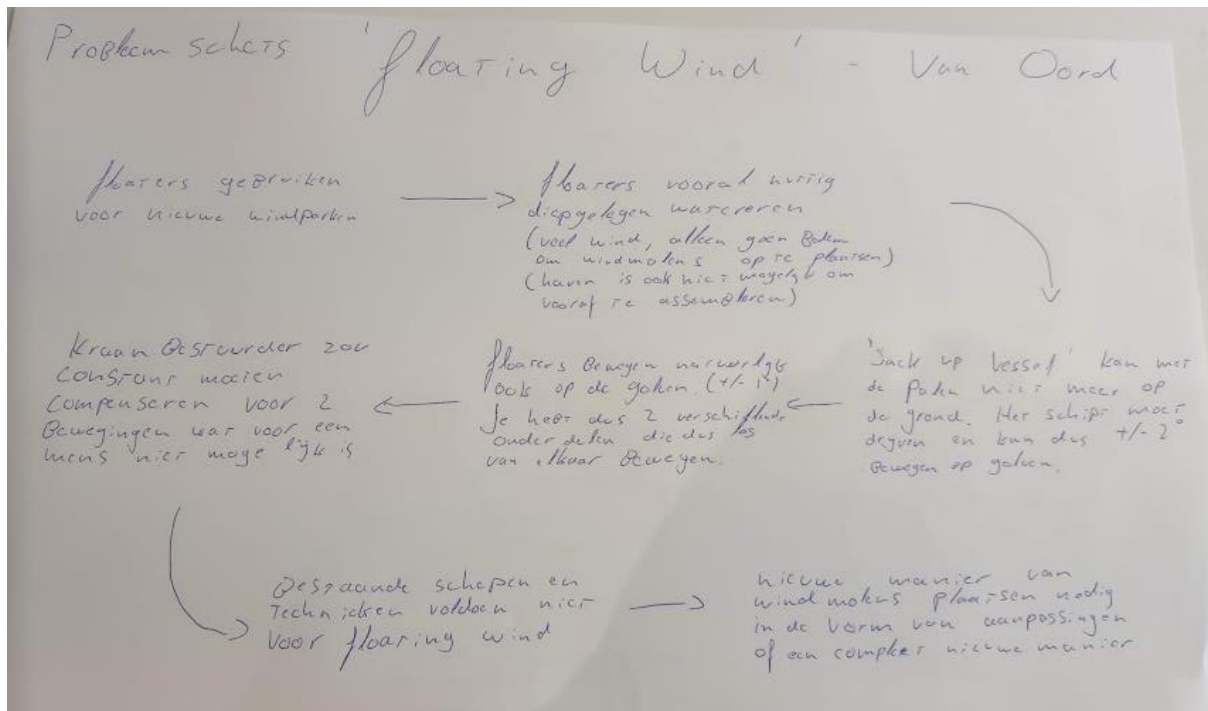 Probleem schets 'floating Wind' - Van Oord
floaters gebruiken
voor nieuwe windparken
floaters vooral nuttig
diepgelegen watereren
(veel wind, alleen geen bodem
om windmolens op te plaatsen)
(haven is ook niet mogelijk om
vooraf te assembleren)
'Jack up vessel' kan met
de palen niet meer op
de grond. Het schip moet
drijven en kan dus +/- 2°
bewegen op golven.
floaters bewegen natuurlijk
ook op de golven. (+/- 1°)
Je hebt dus 2 verschillende
onder delen die dus los
van elkaar bewegen.
Kraan bestuurder zou
constant moeten
compenseren voor 2
bewegingen wat voor een
mens niet mogelijk is
Bestaande schepen en
technieken voldoen niet
voor floating wind
nieuwe manier van
windmolens plaatsen nodig
in de vorm van aanpassingen
of een compleet nieuwe manier